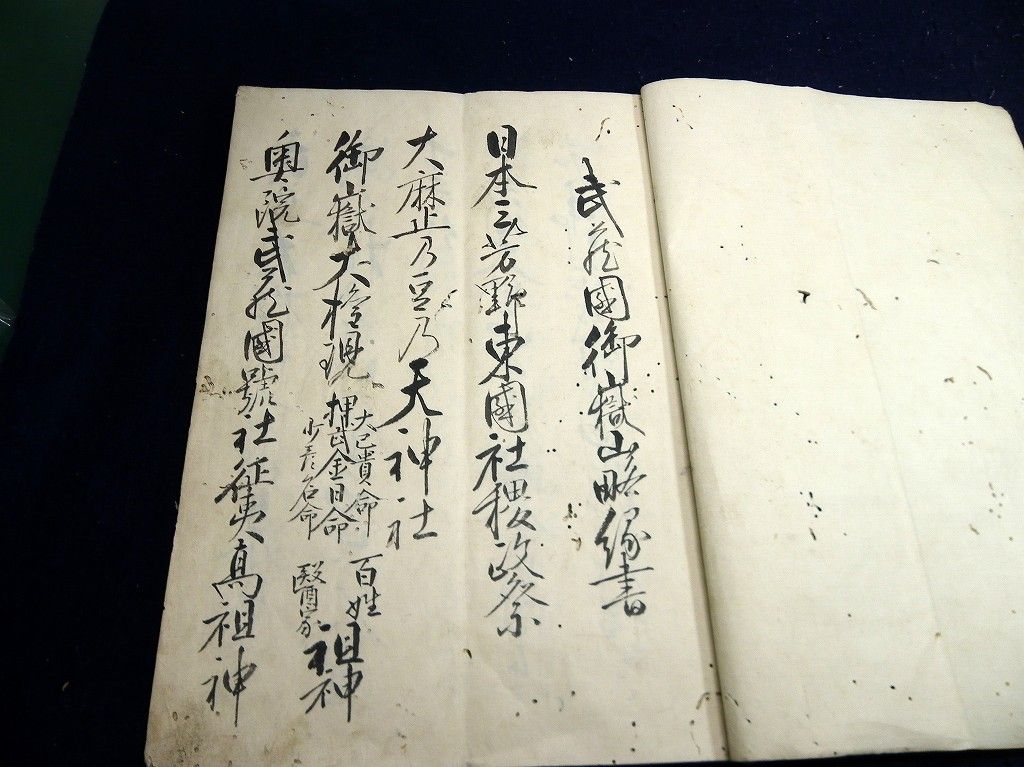 武蔵國御嶽山略縁書
日本三芳野東國社稷政祭
大麻止乃豆乃天神社
御嶽大権現
大己貴命
押武金日命
少彦名命
百姓
醫家
祖神
奥院武蔵國號社征夷高祖神